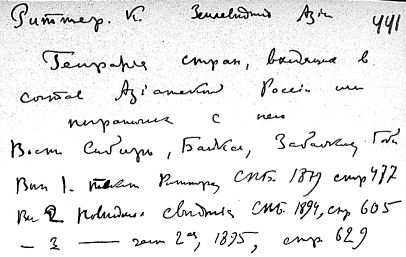 Риттер. К. Землевидение Азии 441
География стран, входящих в
состав Азиатской России или
пограничных с нею
Вост Сибирь, Байкал, Забайкалье, Гоби
Вып 1. текст Риттера СПб. 1879 стр 477
Вып 2 новейшие сведения СПб. 1894, стр 605
— 3 — част 2ая, 1895, стр. 629